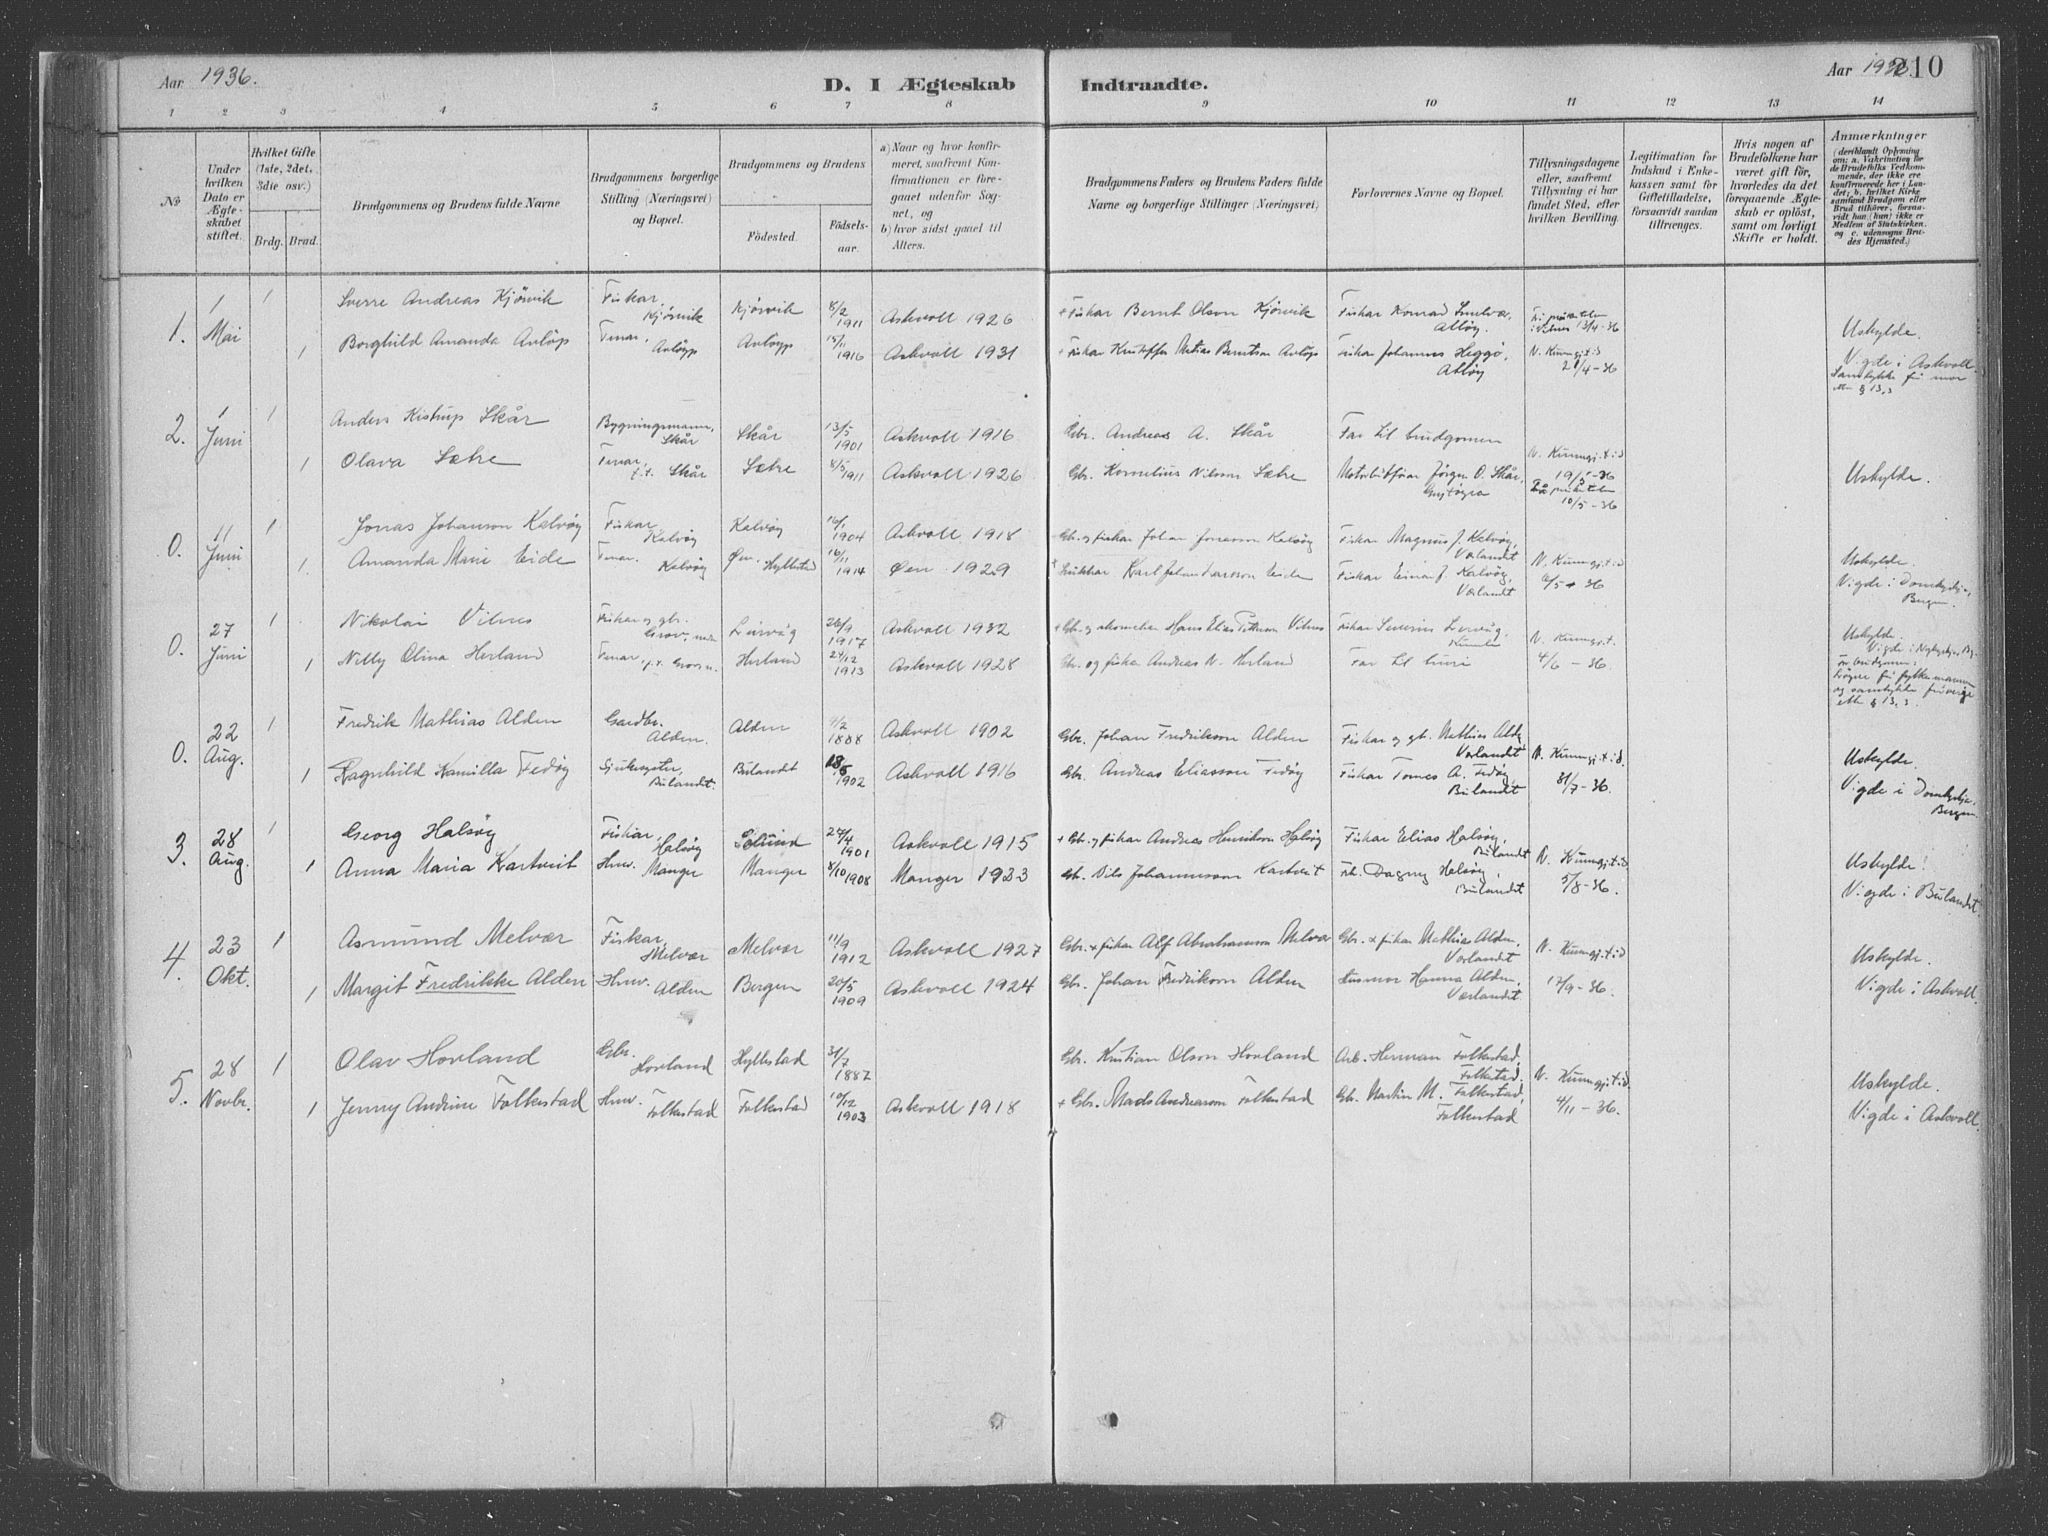 Aar 1936.
D. I Ægteskab Indtraadte.
Aar 1936. 210
1 2 3 4 5 6 7 8 9 10 11 12 13 14
No
Under hvilken Dato er Ægteskabet stiftet.
Hvilket Gifte (1ste, 2det, 3die osv.)
Brdg. Brud.
Brudgommens og Brudens fulde Navne
Brudgommens borgerlige Stilling (Næringsvei) og Bopæl.
Brudgommens og Brudens
Födested. Födselsaar.
a) Naar og hvor konfirmeret, saafremt Konfirmationen er foregaaet udenfor Sognet, og
b) hvor sidst gaael til Alters.
Brudgommens Faders og Brudens Faders fulde Navne og borgerlige Stillinger (Næringsvei)
Forlovernes Navne og Bopæl.
Tillysningsdagene eller, saafremt Tillysning ei har fundet Sted, efter hvilken Bevilling.
Legitimation for Indskud i Enkekassen samt for Giftetilladelse, forsaavidt saadan tiltrænges.
Hvis nogen af Brudefolkene har været gift för, hvorledes da det foregaaende Ægteskab er oplöst, samt om lovligt Skifte er holdt.
Anmærkninger (deriblandt Oplysning om: a. Vakcination for de Brudefolks Vedkommende, der ikke ere konfirmerede her i Landet; b. hvilket Kirkesamfund Brudgom eller Brud tilhörer, forsaavidt han (hun) ikke er Medlem af Statskirken. og c. udensogns Brudes Hjemsted.)
1. 1 Mai 1 Sverre Andreas Kjørvik Fiskar, Kjørvik Kjørvik 8/2 1911 Askvoll 1926 + Fiskar Bernt Olson Kjørvik Fiskar Konrad
1 Borghild Amanda Avløyp Tenar, Avløyp Avløyp 15/11 1916 Askvoll 1931 + Fiskar Matias Berntson Avløyp Fiskar Johannes Heggø, Atløy N. Kunngj. tid 21/4-36
Uskylde. Vigde i Askvoll.
2. 1 Juni 1 Anders Kistrup Skår Bygningsmann, Skår Skår 13/5 1901 Askvoll 1916 Gbr. Andreas A. Skår Far til brudgomen
1 Olava Sætre Tenar, f.t. Skår Sætre 8/5 1911 Askvoll 1926 Gbr. Kornelius Nilsson Sætre Jørgen O. Skår, N. Kunngj. tid 19/5-36 10/5-36 Uskylde.
0. 11 Juni 1 Jonas Johanson Kalvøy Fiskar, Kalvøy Kalvøy 16/1 1904 Askvoll 1918 Gbr. og fiskar Johan Jonasson Kalvøy Fiskar Magnus J. Kalvøy, Værlandet
1 Amanda Marie Eide Tenar, Kalvøy Øen, Hyllestad 16/11 1914 Øen 1929 Karl Johan Larsson Eide Fiskar Einar J. Kalvøy, Værlandet N. Kunngj. tid 6/5-36
Uskylde. Vigde i Domkyrkja, Bergen.
0. 27 Juni 1 Nikolai Vilnes Fiskar og gbr. 26/9 1917 Askvoll 1932 Hans Elias Vilnes Fiskar Severin
1 Nelly Olina Herland Tenar, Herland 24/12 1913 Askvoll 1928 Gbr. og fiskar Andreas N. Herland Far til bruri N. Kunngj.t. 4/6-36
Uskylde. Vigde i
0. 22 Aug. 1 Fredrik Mathias Alden Gardbr. Alden. Alden 9/2 1888 Askvoll 1902 Gbr. Johan Fredrikson Alden Fiskar og gb. Mathias Alden Værlandet
1 Ragnhild Kamilla Fedøy Sjukesyster, Bulandet. Bulandet 1902 Askvoll 1916 Gbr. Andreas Eliassen Fedøy Fiskar Tomas A. Fedøy, Bulandet N. Kunngj. tid. 31/7-36.
Uskylde. Vigde i Domkyrkja, Bergen
3. 28 Aug. 1 Georg Halsøy Fiskar, Halsøy Solund 24/4 1901 Askvoll 1915 + Gbr. og fiskar Andreas Henrikson Halsøy Fiskar Elias Halsøy, Bulandet
1 Anna Maria Kartveit Hmv. Manger Manger 8/10 1908 Manger 1923 Gb. Nils Johannesson Kartveit Frk. Dagny Halsøy, Bulandet N. Kunngj. tid 5/8-36.
Uskylde! Vigde i Bulandet.
4. 23 Okt. 1 Asmund Melvær Fiskar, Melvær Melvær 11/9 1912 Askvoll 1927 Gbr. + fiskar Alf Abrahamson Melvær Gbr. + fiskar Mathias Alden, Værlandet
1 Margit Fredrikke Alden Hmv. Alden Bergen 20/5 1909 Askvoll 1924 Gbr. Johan Fredrikson Alden Husmor Hanna Alden, Værlandet N. Kunngj. tid 17/9-36.
Uskylde. Vigde i Askvoll.
5. 28 Novbr. 1 Olav Hovland Gbr. Hovland Hyllestad 31/7 1887 Gbr. Kristian Olson Hovland Arb. Herman Folkestad, Folkestad.
1 Jenny Andrine Folkestad Hmv. Folkestad Folkestad 10/12 1903 Askvoll 1918 + Gbr. Mads Andreasson Folkestad Gbr. Martin M. Folkestad, Folkestad N. Kunngj. tid. 4/11-36.
Uskylde. Vigde i Askvoll.